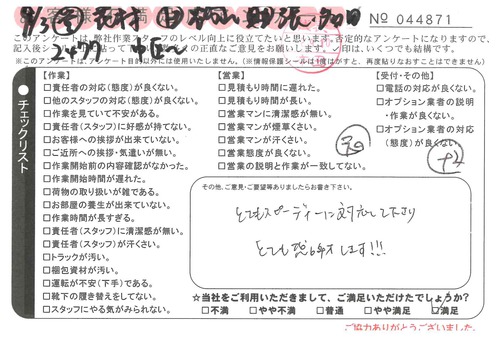 No 044871
このアンケートは、弊社作業スタッフのレベル向上に役立てたいと思います。否定的なアンケートになりますので、
※このアンケートは、アンケート目的以外には使用いたしません。(※情報保護シールは1度はがすと、再度貼りなおすことはできません)
●チェックリスト
【作業】
□責任者の対応(態度)が良くない。
□他のスタッフの対応(態度)が良くない。
□作業を見ていて不安がある。
□責任者(スタッフ)に好感が持てない。
□お客様への挨拶が出来ていない。
□ご近所への挨拶・気遣いが無い。
□作業開始前の内容確認がなかった。
□作業開始時間が遅れた。
□荷物の取り扱いが雑である。
□お部屋の養生が出来ていない。
□作業時間が長すぎる。
□責任者(スタッフ)に清潔感が無い。
□責任者(スタッフ)が汗くさい。
□トラックが汚い。
□梱包資材が汚い。
□運転が不安(下手)である。
□靴下の履き替えをしてない。
□スタッフにやる気がみられない。
【営業】
□見積もり時間に遅れた。
□見積もり時間が長い。
□営業マンに清潔感が無い。
□営業マンが煙草くさい。
□営業マンが汗くさい。
□営業態度が良くない。
□営業の説明と作業が一致してない。
【受付・その他】
□電話の対応が良くない。
□オプション業者の説明
・作業が良くない。
□オプション業者の対応
(態度)が良くない。
その他、ご意見・ご要望等ありましたらお書き下さい。
とてもスピーディーに対応して下さり
とても感謝します!!!
☆当社をご利用いただきまして、ご満足いただけたでしょうか?
□不満 □やや不満 □普通 □やや満足 □満足
ご協力ありがとうございました。